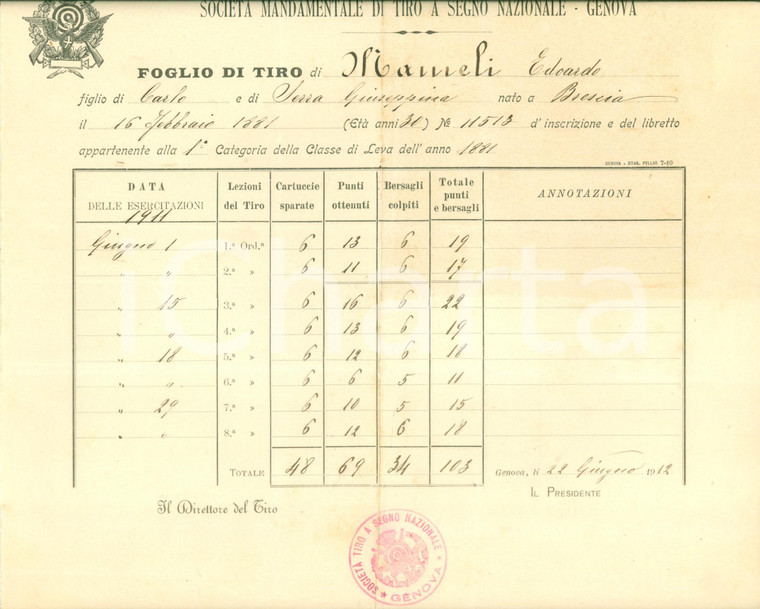 SOCIETÀ MANDAMENTALE DI TIRO A SEGNO NAZIONALE - GENOVA
FOGLIO DI TIRO di Mameli Edoardo
figlio di Carlo e di Serra Giuseppina nato a Brescia
il 16 febbraio 1881 (Età anni 30) № 11513 d'inscrizione e del libretto
appartenente alla 1ª Categoria della Classe di Leva dell'anno 1881
GENOVA - STAB. PELLAS 7-10
DATA DELLE ESERCITAZIONI Lezioni del Tiro Cartuccie sparate Punti ottenuti Bersagli colpiti Totale punti e bersagli ANNOTAZIONI
1911
Giugno 1 1.ª Ord.ª 6 13 6 19
" " 2.ª » 6 11 6 17
" 15 3.ª » 6 16 6 22
" " 4.ª » 6 13 6 19
" 18 5.ª » 6 12 6 18
" " 6.ª » 6 6 5 11
" 29 7.ª » 6 10 5 15
" " 8.ª » 6 12 6 18
TOTALE 48 69 34 103
Genova, li 22 Giugno 1912
Il Direttore del Tiro
IL PRESIDENTE
SOCIETÀ TIRO A SEGNO NAZIONALE
GENOVA
iCharta